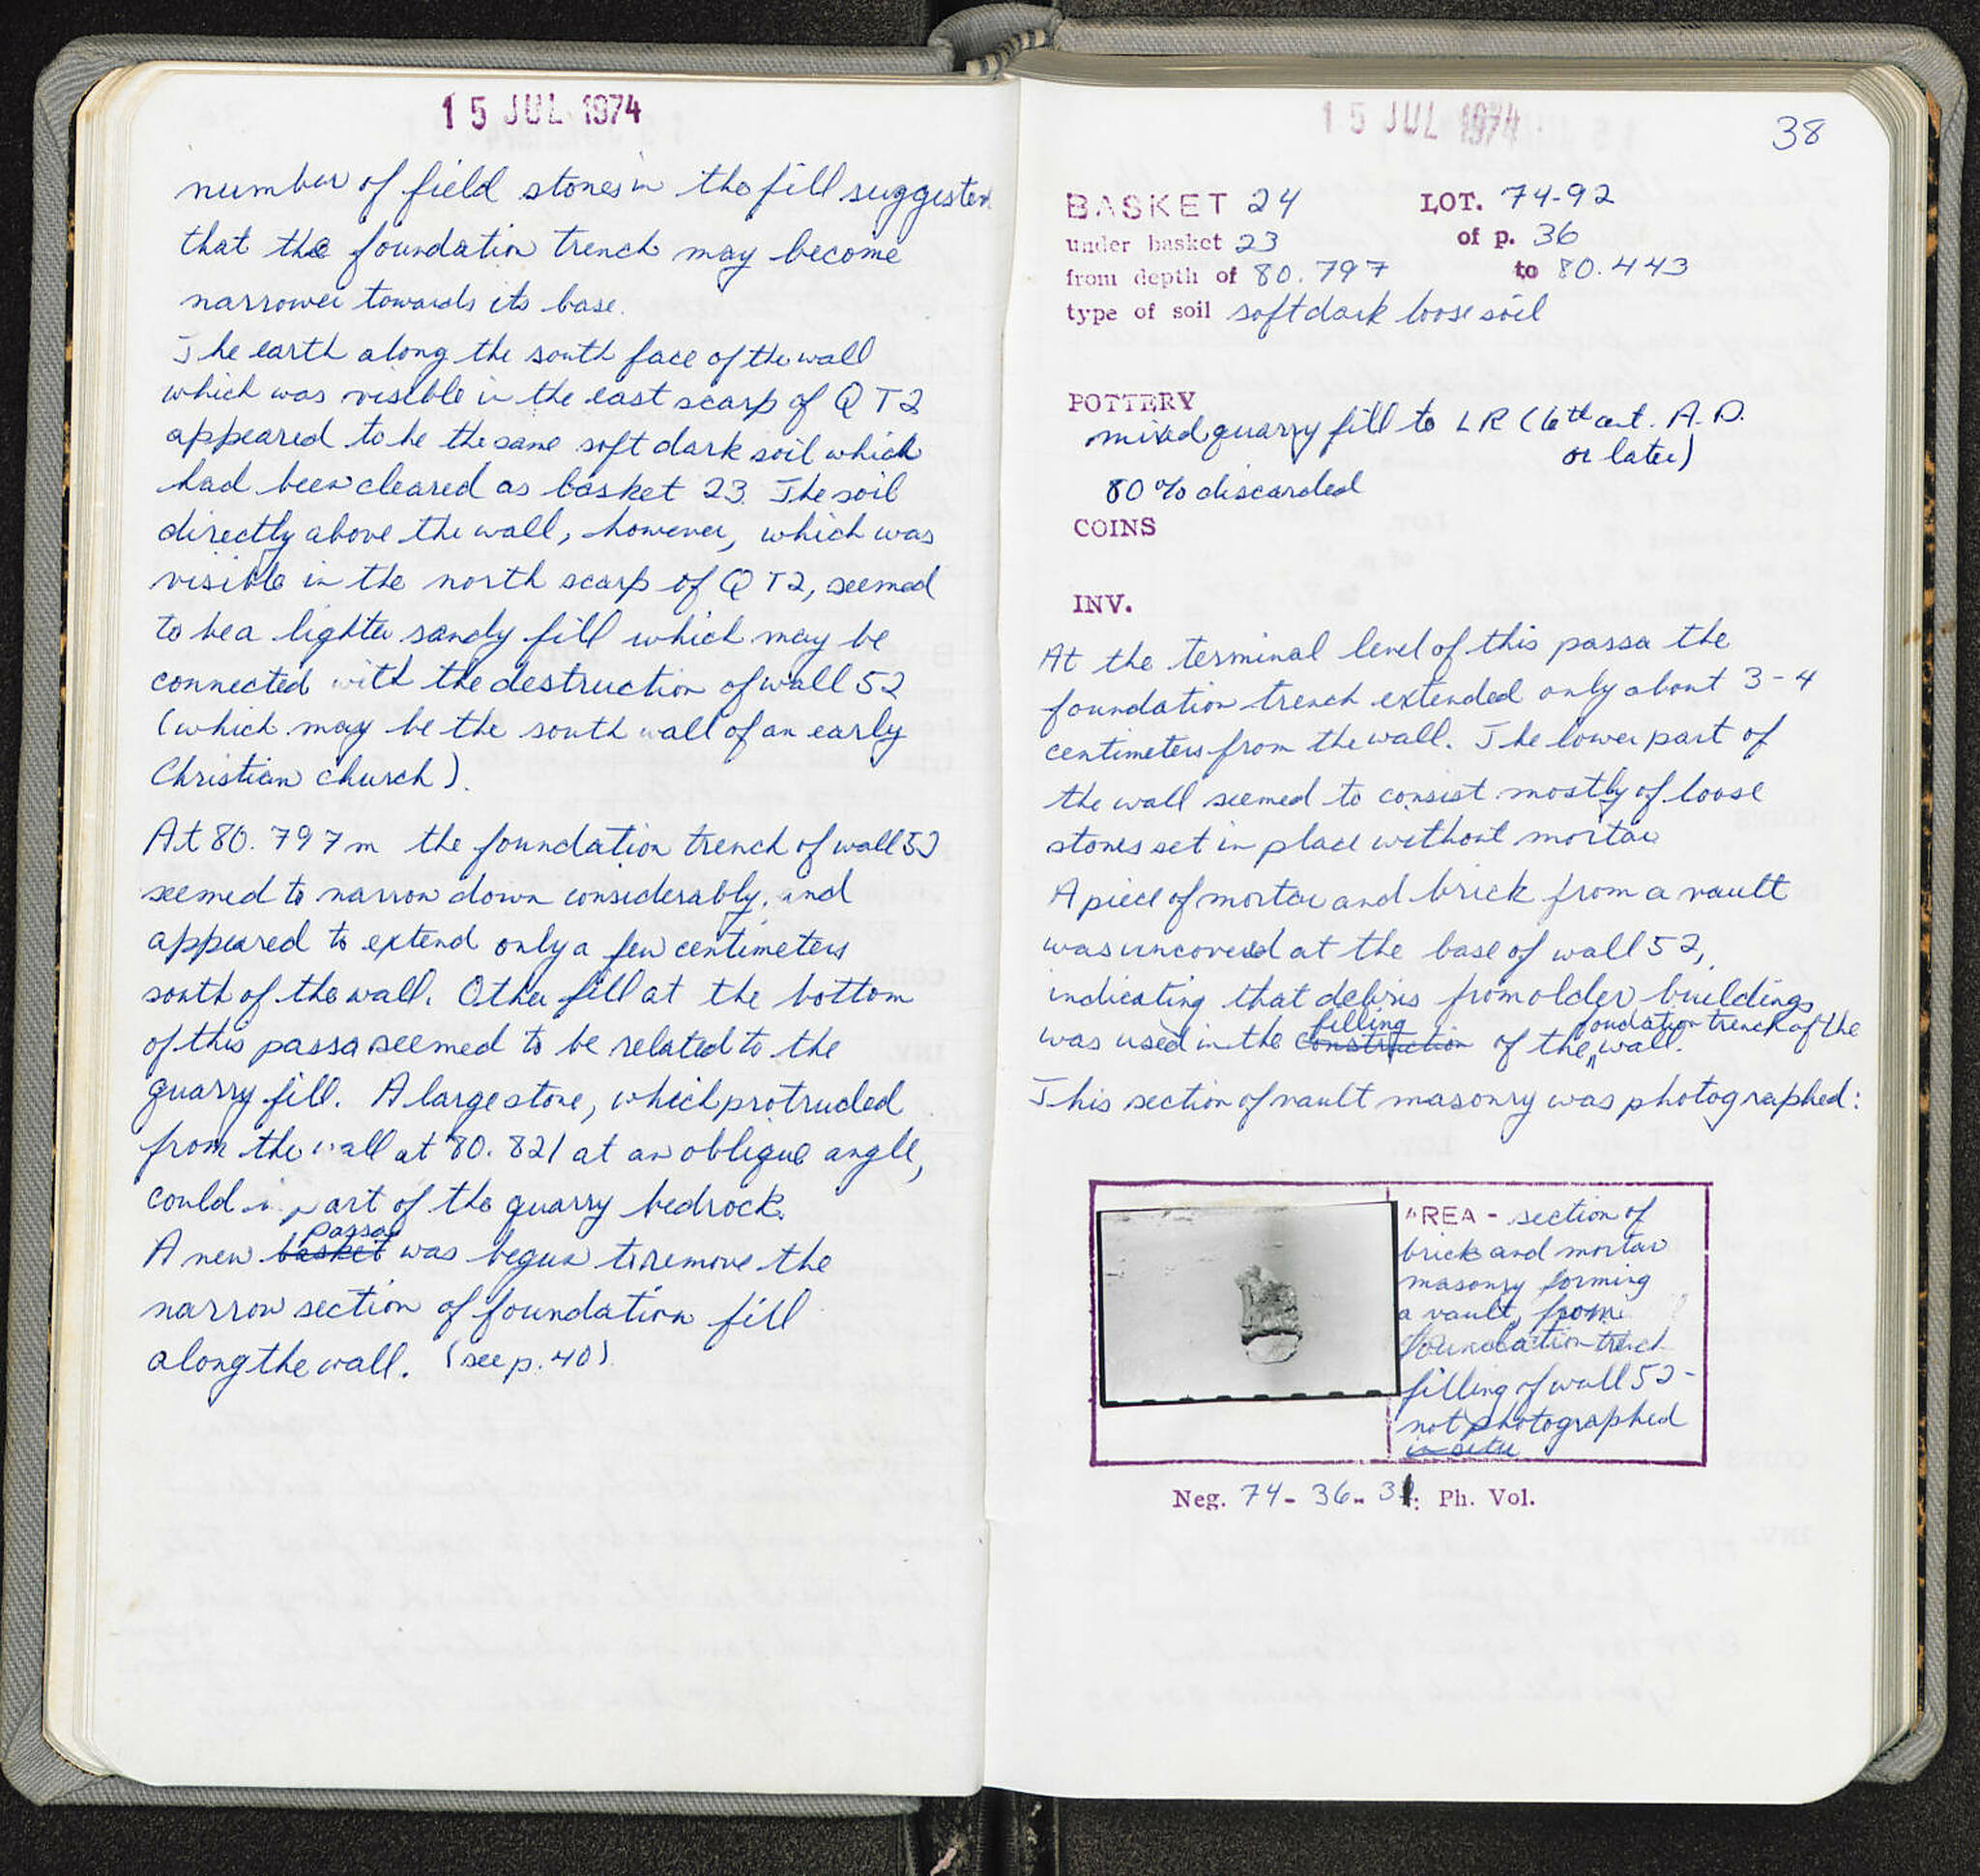 15 JUL 1974
number of field stones in the fill suggested
that the foundation trench may become
narrower towards its base.
The earth along the south face of the wall
which was visible in the east scarp of QT2
appeared to be the same soft dark soil which
had been cleared as basket 23. The soil
directly above the wall, however, which was
visible in the north scarp of QT2, seemed
to be a lighter sandy fill which may be
connected with the destruction of wall 52
(which may be the south wall of an early
Christian church).
At 80.797 m the foundation trench of wall 52
seemed to narrow down considerably, and
appeared to extend only a few centimeters
south of the wall. Other fill at the bottom
of this passa seemed to be related to the
quarry fill. A large stone, which protruded
from the wall at 80.821 at an oblique angle,
could part of the quarry bedrock.
passa
A new basket was begun to remove the
narrow section of foundation fill
along the wall. (see p. 40)
15 JUL 1974
38
BASKET 24 LOT. 74-92
under basket 23 of p. 36
from depth of 80.797 to 80.443
type of soil soft dark loose soil
POTTERY
mixed quarry fill to LR (6th cent. A.D.
or later)
80% discarded
COINS
INV.
At the terminal level of this passa the
foundation trench extended only about 3-4
centimeters from the wall. The lower part of
the wall seemed to consist mostly of loose
stones set in place without mortar
A piece of mortar and brick from a vault
was uncovered at the base of wall 52,
indicating that debris from older buildings
filling foundation trench of the
was used in the construction of the wall.
This section of vault masonry was photographed:
AREA - section of
brick and mortar
masonry forming
a vault, from
foundation trench
filling of wall 52 -
not photographed
in situ
Neg. 74-36-31: Ph. Vol.